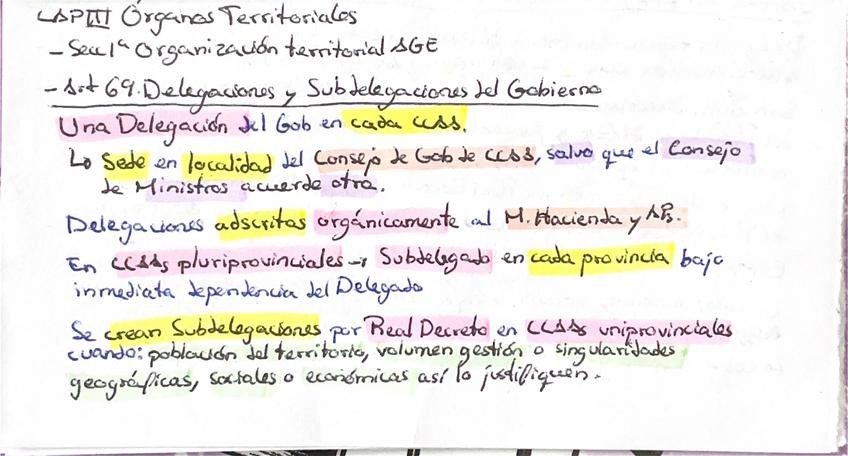 CAP III Órganos Territoriales
- Sec 1ª Organización territorial AGE
- Art 69. Delegaciones y Subdelegaciones del Gobierno
Una Delegación del Gob en cada CCAA.
↳ Sede en localidad del Consejo de Gob de CCAA, salvo que el Consejo
de Ministros acuerde otra.
Delegaciones adscritas orgánicamente al M. Hacienda y APs.
En CCAAs pluriprovinciales → Subdelegado en cada provincia bajo
inmediata dependencia del Delegado
Se crean Subdelegaciones por Real Decreto en CCAAs uniprovinciales
cuando: población del territorio, volumen gestión o singularidades
geográficas, sociales o económicas así lo justifiquen.